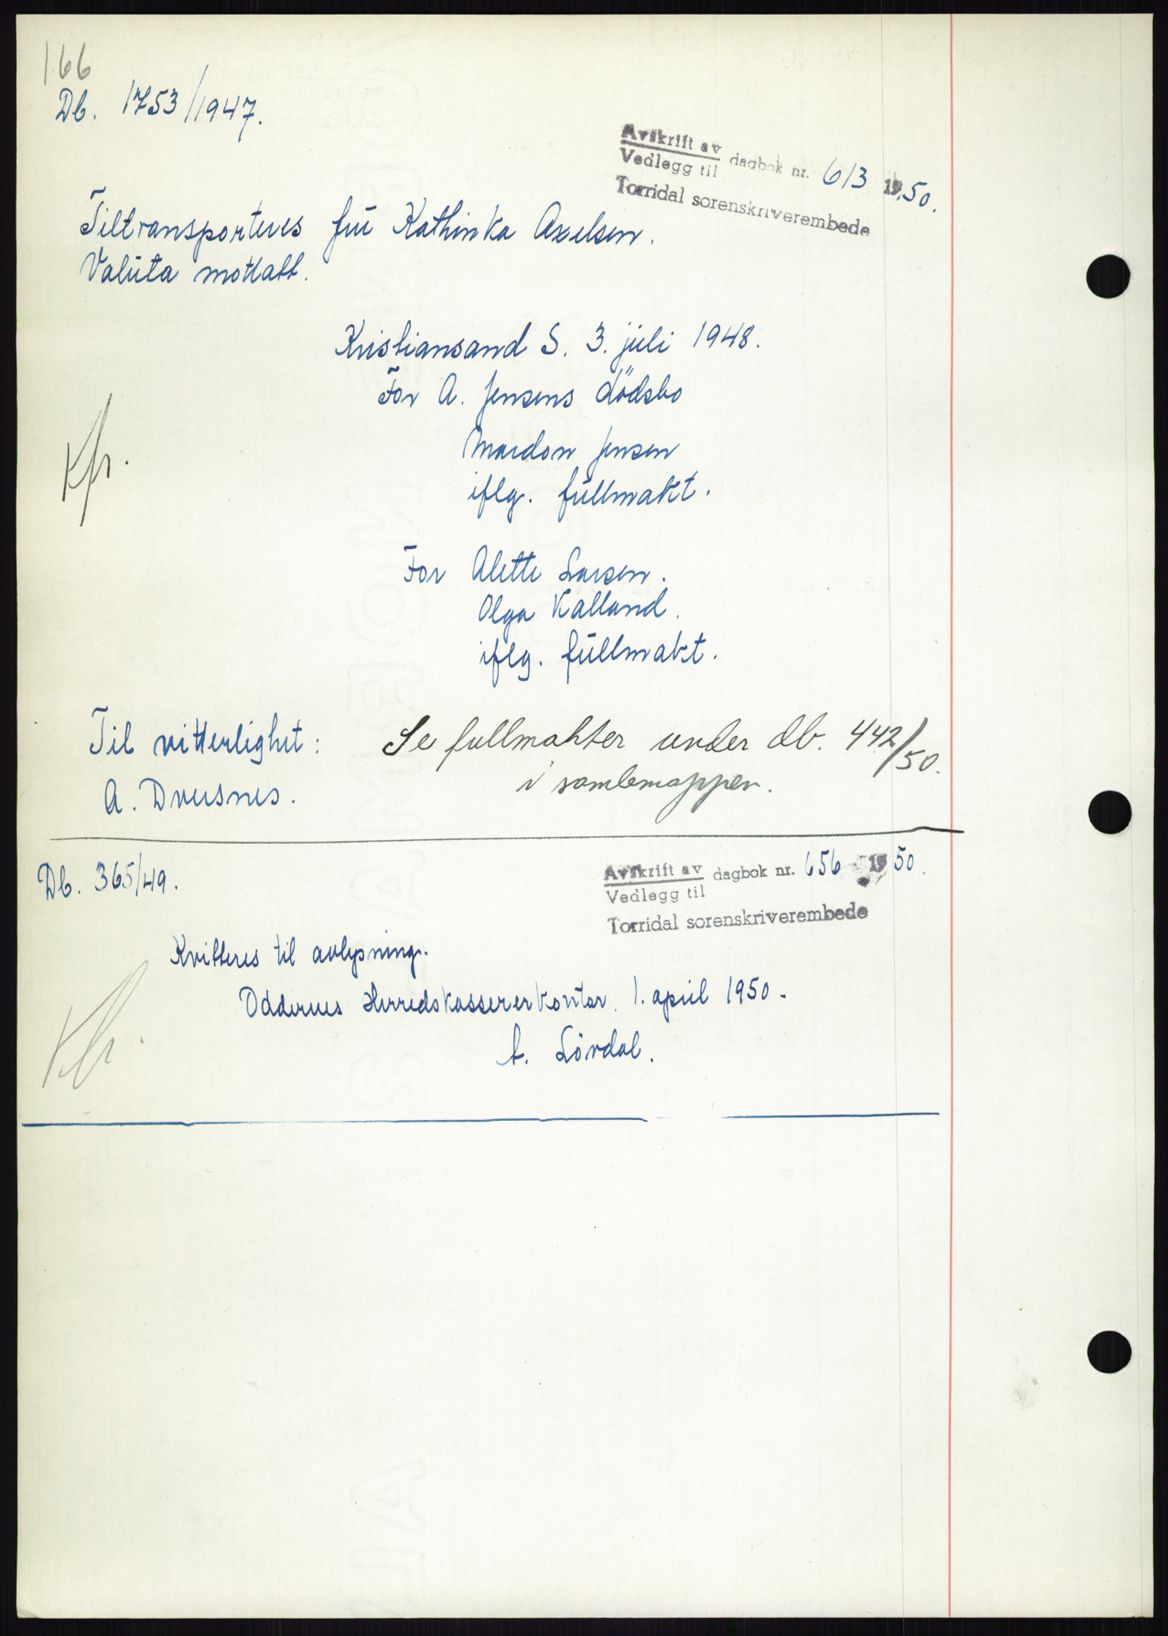 166
Db. 1753/1947.
Avskrift av
Vedlegg til
dagbok nr. 613 1950.
Torridal sorenskriverembede
Tiltransporteres fru Kathinka Axelsen.
Valuta mottatt.
Kristiansand S. 3. juli 1948.
For A. Jensens dödsbo
Jensen
iflg. fullmakt.
Kfr.
For Alette Larsen.
Olga Kalland.
iflg. fullmakt.
Til vitterlighet:
A. Dversnes.
Se fullmakter under db. 442/50.
i samlemappen.
Db. 365/49.
Avskrift av
Vedlegg til
dagbok nr. 656 1950.
Torridal sorenskriverembede
Kvitteres til avlysning.
Oddernes Herredskassererkontor. 1. april 1950.
Lövdal.
Kfr.